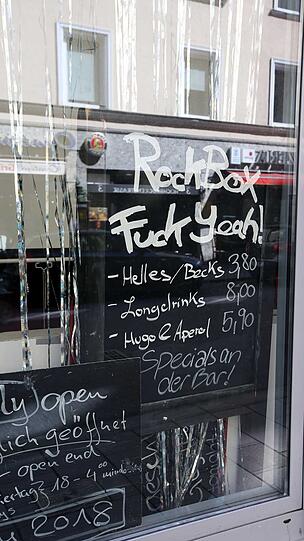 RockBox
Fuck Yeah!
- Helles/Becks 3,80
- Longdrinks 8,00
- Hugo & Aperol 5,90
Specials an
der Bar!
open
geöffnet
open end
18 - 4⁰⁰
2018